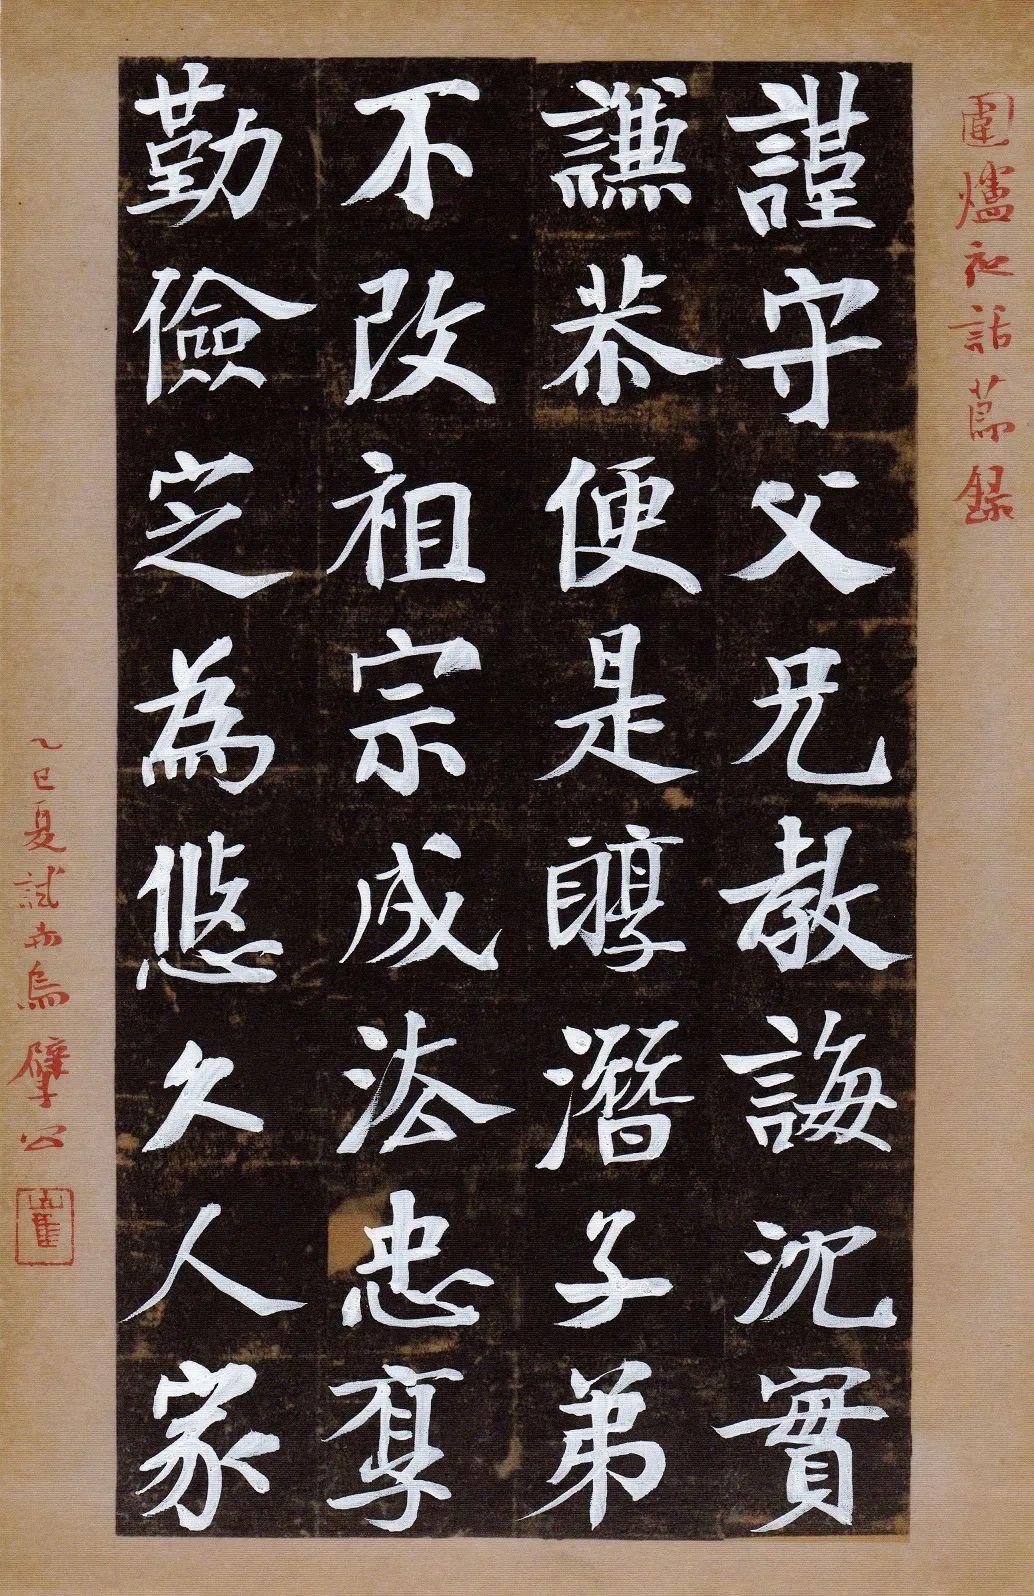 圍爐夜話節錄
謹守父兄教誨沈實
謙恭便是醇潛子弟
不改祖宗成法忠厚
勤儉定為悠久人家
乙巳夏試